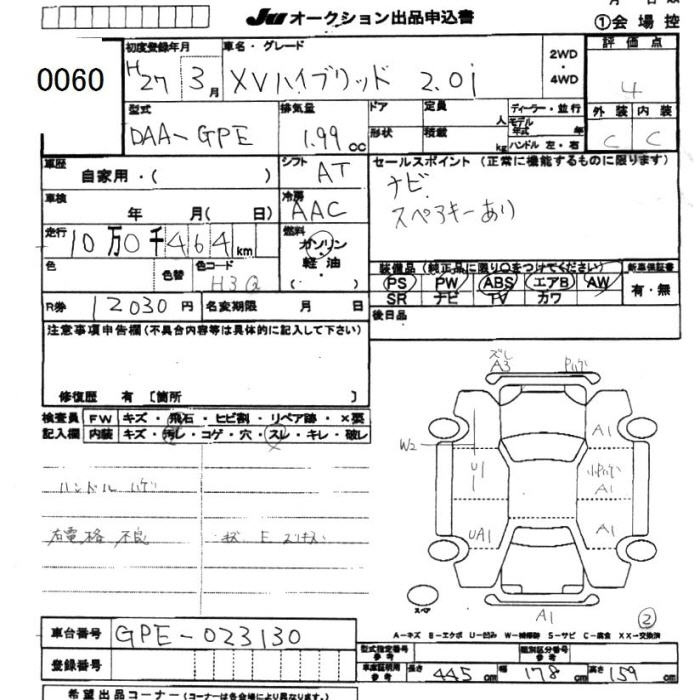 JU オークション出品申込書
①会場控
0060
初度登録年月
H27 3月
車名・グレード
XVハイブリッド 2.0i
2WD・4WD
評価点
4
型式
DAA-GPE
排気量
1.99 cc
ドア
形状
定員 人
積載 kg
ディーラー・並行
モデル年式 年
ハンドル 左・右
外装 内装
C C
車歴
自家用・( )
シフト
AT
セールスポイント (正常に機能するものに限ります)
ナビ
スペアキーあり
車検
年 月( 日)
冷房
AAC
走行
10万0千464km
燃料
ガソリン・軽油
( ・ )
色
色替
色コード
H3Q
装備品 (純正品に限り○をつけてください)
新車保証書
PS PW ABS エアB AW
有・無
SR ナビ TV カワ
R券 12030円
名変期限 月 日
後日品
注意事項申告欄 (不具合内容等は具体的に記入して下さい)
修復歴 有 [箇所 ]
検査員記入欄
FW キズ・飛石・ヒビ割・リペア跡・×要
内装 キズ・汚レ・コゲ・穴・スレ・キレ・破レ
ハンドル ハゲ
右電格 不良
ズレ
A3
A1
W2
U1
A1
UA1
A1
スペア
A1
②
A-キズ B-エクボ U-凹み W-補修跡 S-サビ C-腐食 XX-交換済
車台番号 GPE-023130
登録番号
型式指定番号 参考
類別区分番号 参考
車庫証明用 参考 長さ 445 cm 幅 178 cm 高さ 159 cm
希望出品コーナー (コーナーは各会場により異なります。)